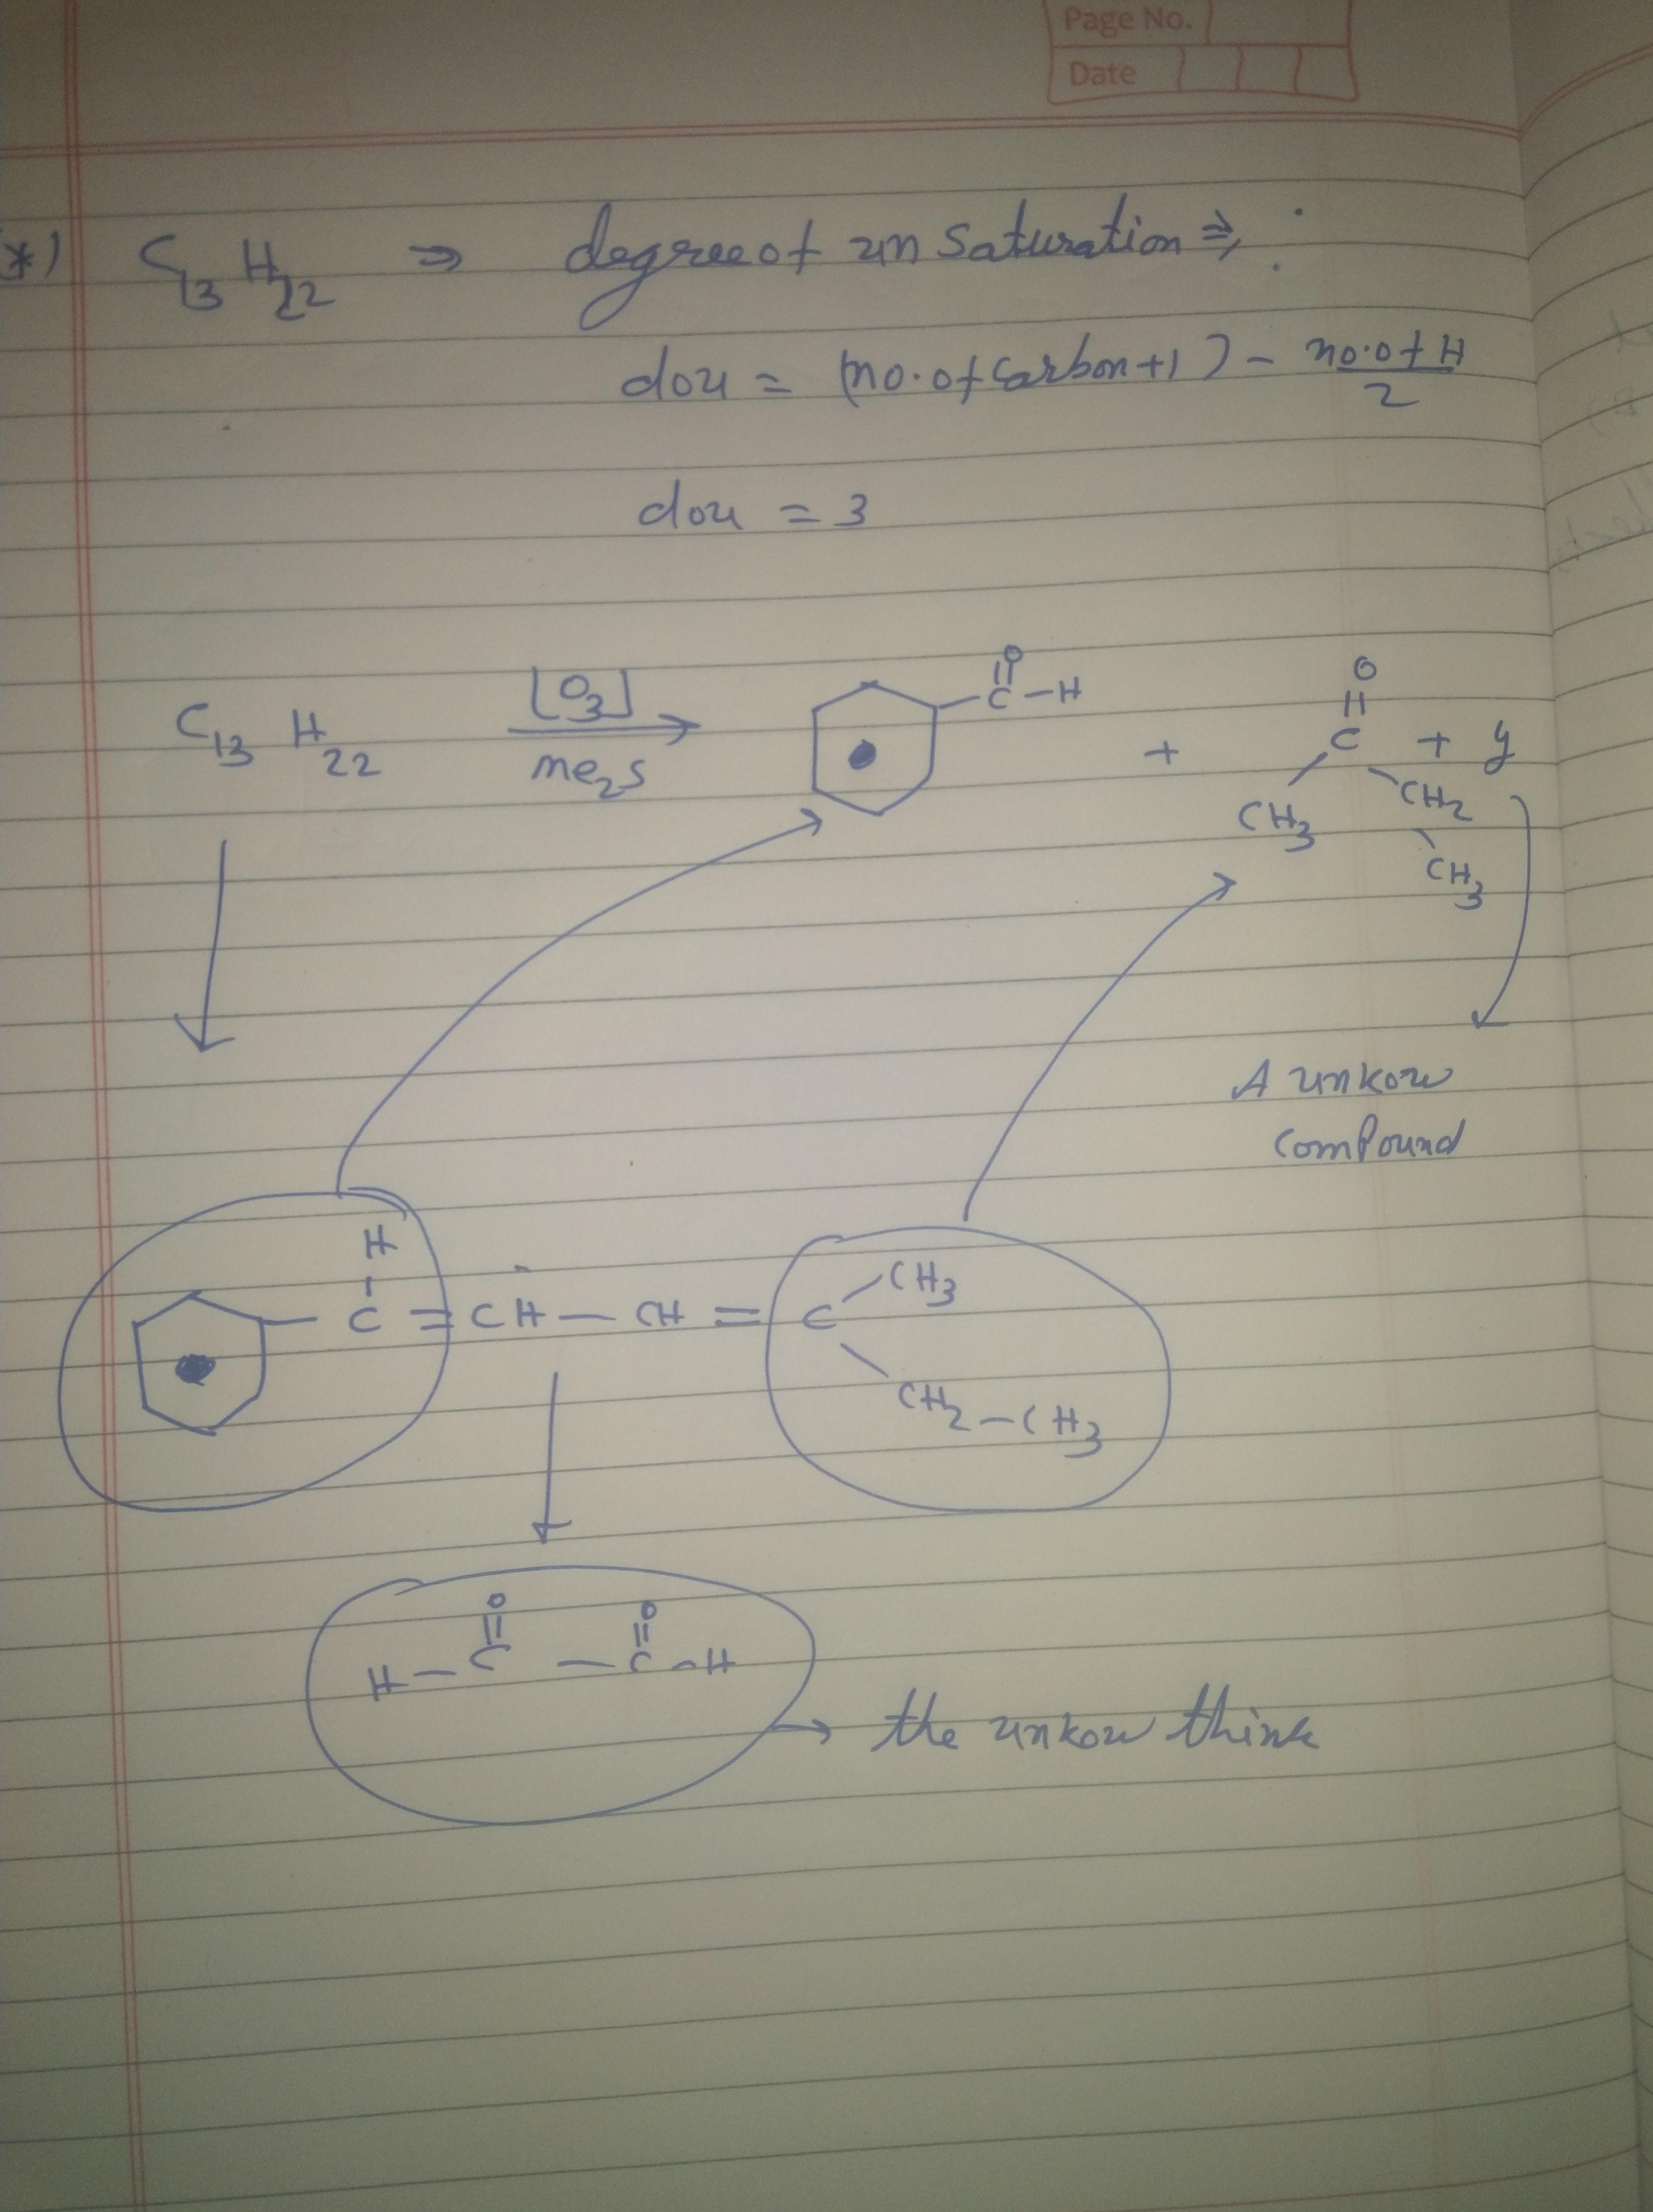 Page No.
Date
*) C13 H22 ⇒ degree of un saturation ⇒ :
dou = (no. of carbon+1) - no. of H / 2
dou = 3
C13 H22 [O3] me2s C O -H + CH3 C O CH2 CH3 + y
A unkow
compound
H
C = CH — CH = C CH3
CH2 - CH3
O O
H - C - C - H
→ the unkow think